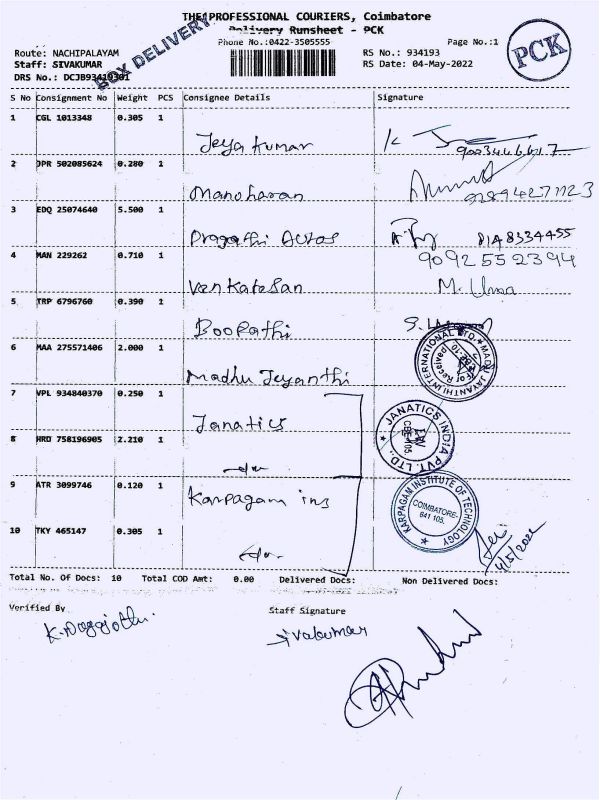 THE PROFESSIONAL COURIERS, Coimbatore
Delivery Runsheet - PCK
BOX DELIVERY
Phone No.:0422-3505555
Page No.:1
PCK
Route: NACHIPALAYAM
RS No.: 934193
Staff: SIVAKUMAR
RS Date: 04-May-2022
DRS No.: DCJB93419301
S No Consignment No Weight PCS Consignee Details Signature
1 CGL 1013348 0.305 1
Jeya kumar
2 JPR 502085624 0.280 1
Manoharan
3 EDQ 25074640 5.500 1
Pragathi Autos 8148334455
4 MAN 229262 0.710 1 9092552394
Venkatesan M. Uma
5 TRP 6796760 0.390 1
Boopathi
6 MAA 275571406 2.000 1
Madhu Jeyanthi
MADHU JAYANTHI INTERNATIONAL LTD.
7 VPL 934840370 0.250 1
Janatics
JANATICS INDIA PVT. LTD.
8 HRD 758196905 2.210 1
9 ATR 3099746 0.120 1
Karpagam ins
KARPAGAM INSTITUTE OF TECHNOLOGY
COIMBATORE-
641 105.
10 TKY 465147 0.305 1
4/5/2022
Total No. Of Docs: 10 Total COD Amt: 0.00 Delivered Docs: Non Delivered Docs:
Verified By
Staff Signature